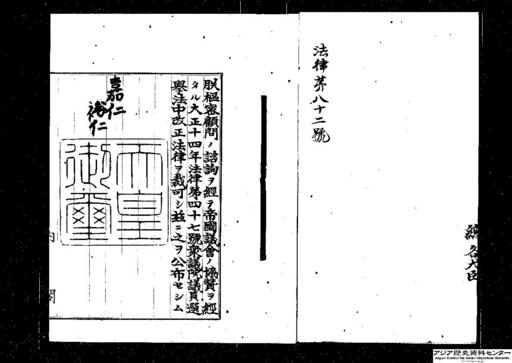 法律第八十二號
總各大臣
朕樞密顧問ノ諮詢ヲ經テ帝國議會ノ協賛ヲ經
タル大正十四年法律第四十七號衆議院議員選
擧法中改正法律ヲ裁可シ玆ニ之ヲ公布セシム
嘉仁
裕仁
天皇
御璽
内閣
アジア歴史資料センター
Japan Center for Asian Historical Records